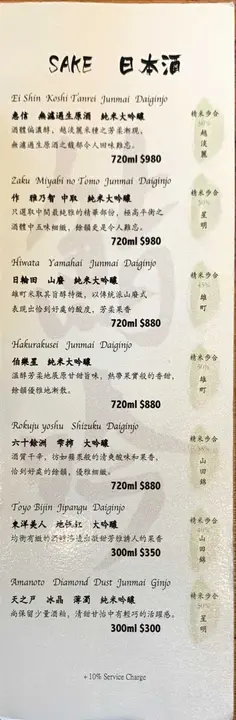 SAKE 日本酒
Ei Shin Koshi Tanrei Junmai Daiginjo
惠信 無濾過生原酒 純米大吟釀
酒體偏濃醇，越淡麗米種之芳茱漸現，
無濾過生原酒之馥郁令人回味難忘。
720ml $980
精米步合
50%
越淡麗
Zaku Miyabi no Tomo Junmai Daiginjo
作 雅乃智 中取 純米大吟釀
只選取中間最純雅的精華部份，極高平衡之
酒體中五味細緻，餘韻更是令人難忘。
720ml $980
精米步合
50%
星明
Hiwata Yamahai Junmai Daiginjo
日輪田 山廢 純米大吟釀
雄町米取其旨醇特徵，以傳統派山廢式
表現出恰到好處的酸度，芳茱果香
720ml $880
精米步合
45%
雄町
Hakurakusei Junmai Daiginjo
伯樂星 純米大吟釀
溫醇芳茱地展原甘甜旨味，熱帶果實般的香甜，
餘韻優雅地漸散。
720ml $880
精米步合
雄町
Rokuju yoshu Shizuku Daiginjo
六十餘洲 雫搾 大吟釀
酒質干辛，彷如蘋果般的清爽酸味和果香，
恰到好處的餘韻，優雅細緻。
720ml $880
精米步合
山田錦
Toyo Bijin Jipangu Daiginjo
東洋美人 地伝紅 大吟釀
300ml $350
精米步合
40%
山田錦
Amanoto Diamond Dust Junmai Ginjo
天之戸 冰晶 薄濁 純米吟釀
尚保留少量酒粕，清甜甘怡中有輕巧的活躍感。
300ml $300
精米步合
星明
+ 10% Service Charge